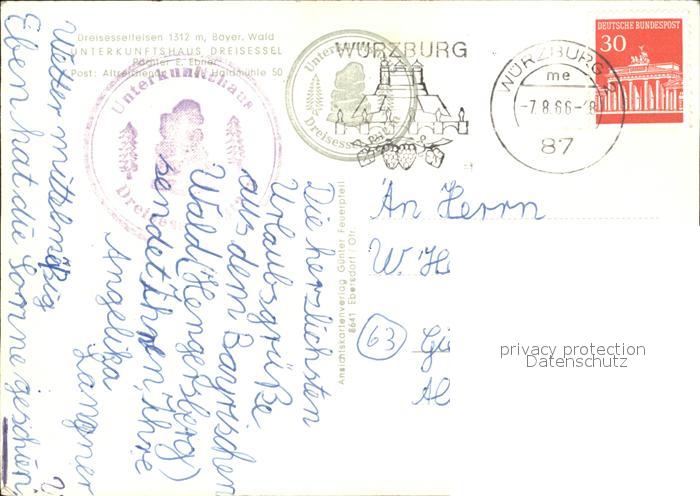 Dreisesselfelsen 1312 m, Bayer. Wald
UNTERKUNFTSHAUS DREISESSEL
Pächter E. Ebner
Post: Altreichenau Haidmühle 50
Unterkunftshaus
Dreisessel
Unterkunftshaus
Dreisessel
WÜRZBURG
WÜRZBURG 2
me
-7.8.66-
87
DEUTSCHE BUNDESPOST
30
Die herzlichsten
Urlaubsgrüße
aus dem Bayrischen
Wald (Hengersberg)
sendet Ihnen, Ihre
Angelika
Langner
Wetter mittelmäßig
Eben hat die Sonne geschienen
Ansichtskartenverlag Günter Feuerpfeil
8641 Ebersdorf / Ofr.
An Herrn
W. H
63 Gi
Al
privacy protection
Datenschutz